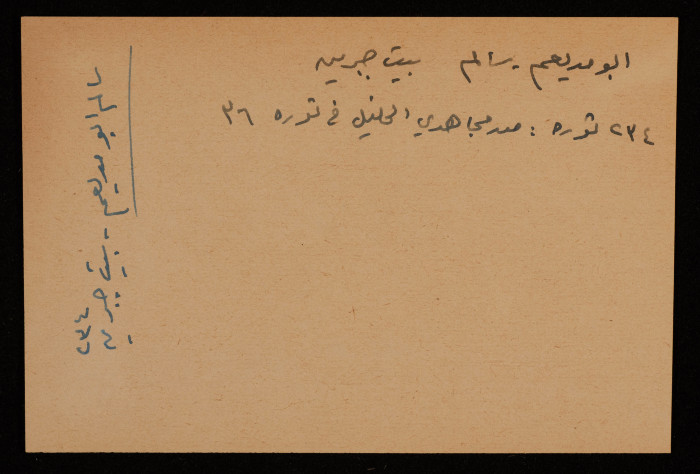 ابو مديعم - سالم بيت جبرين
٢٣٤ ثوره : من مجاهدي الخليل في ثوره ٣٦
سالم ابو مديعم - بيت جبرين
٢٣٤